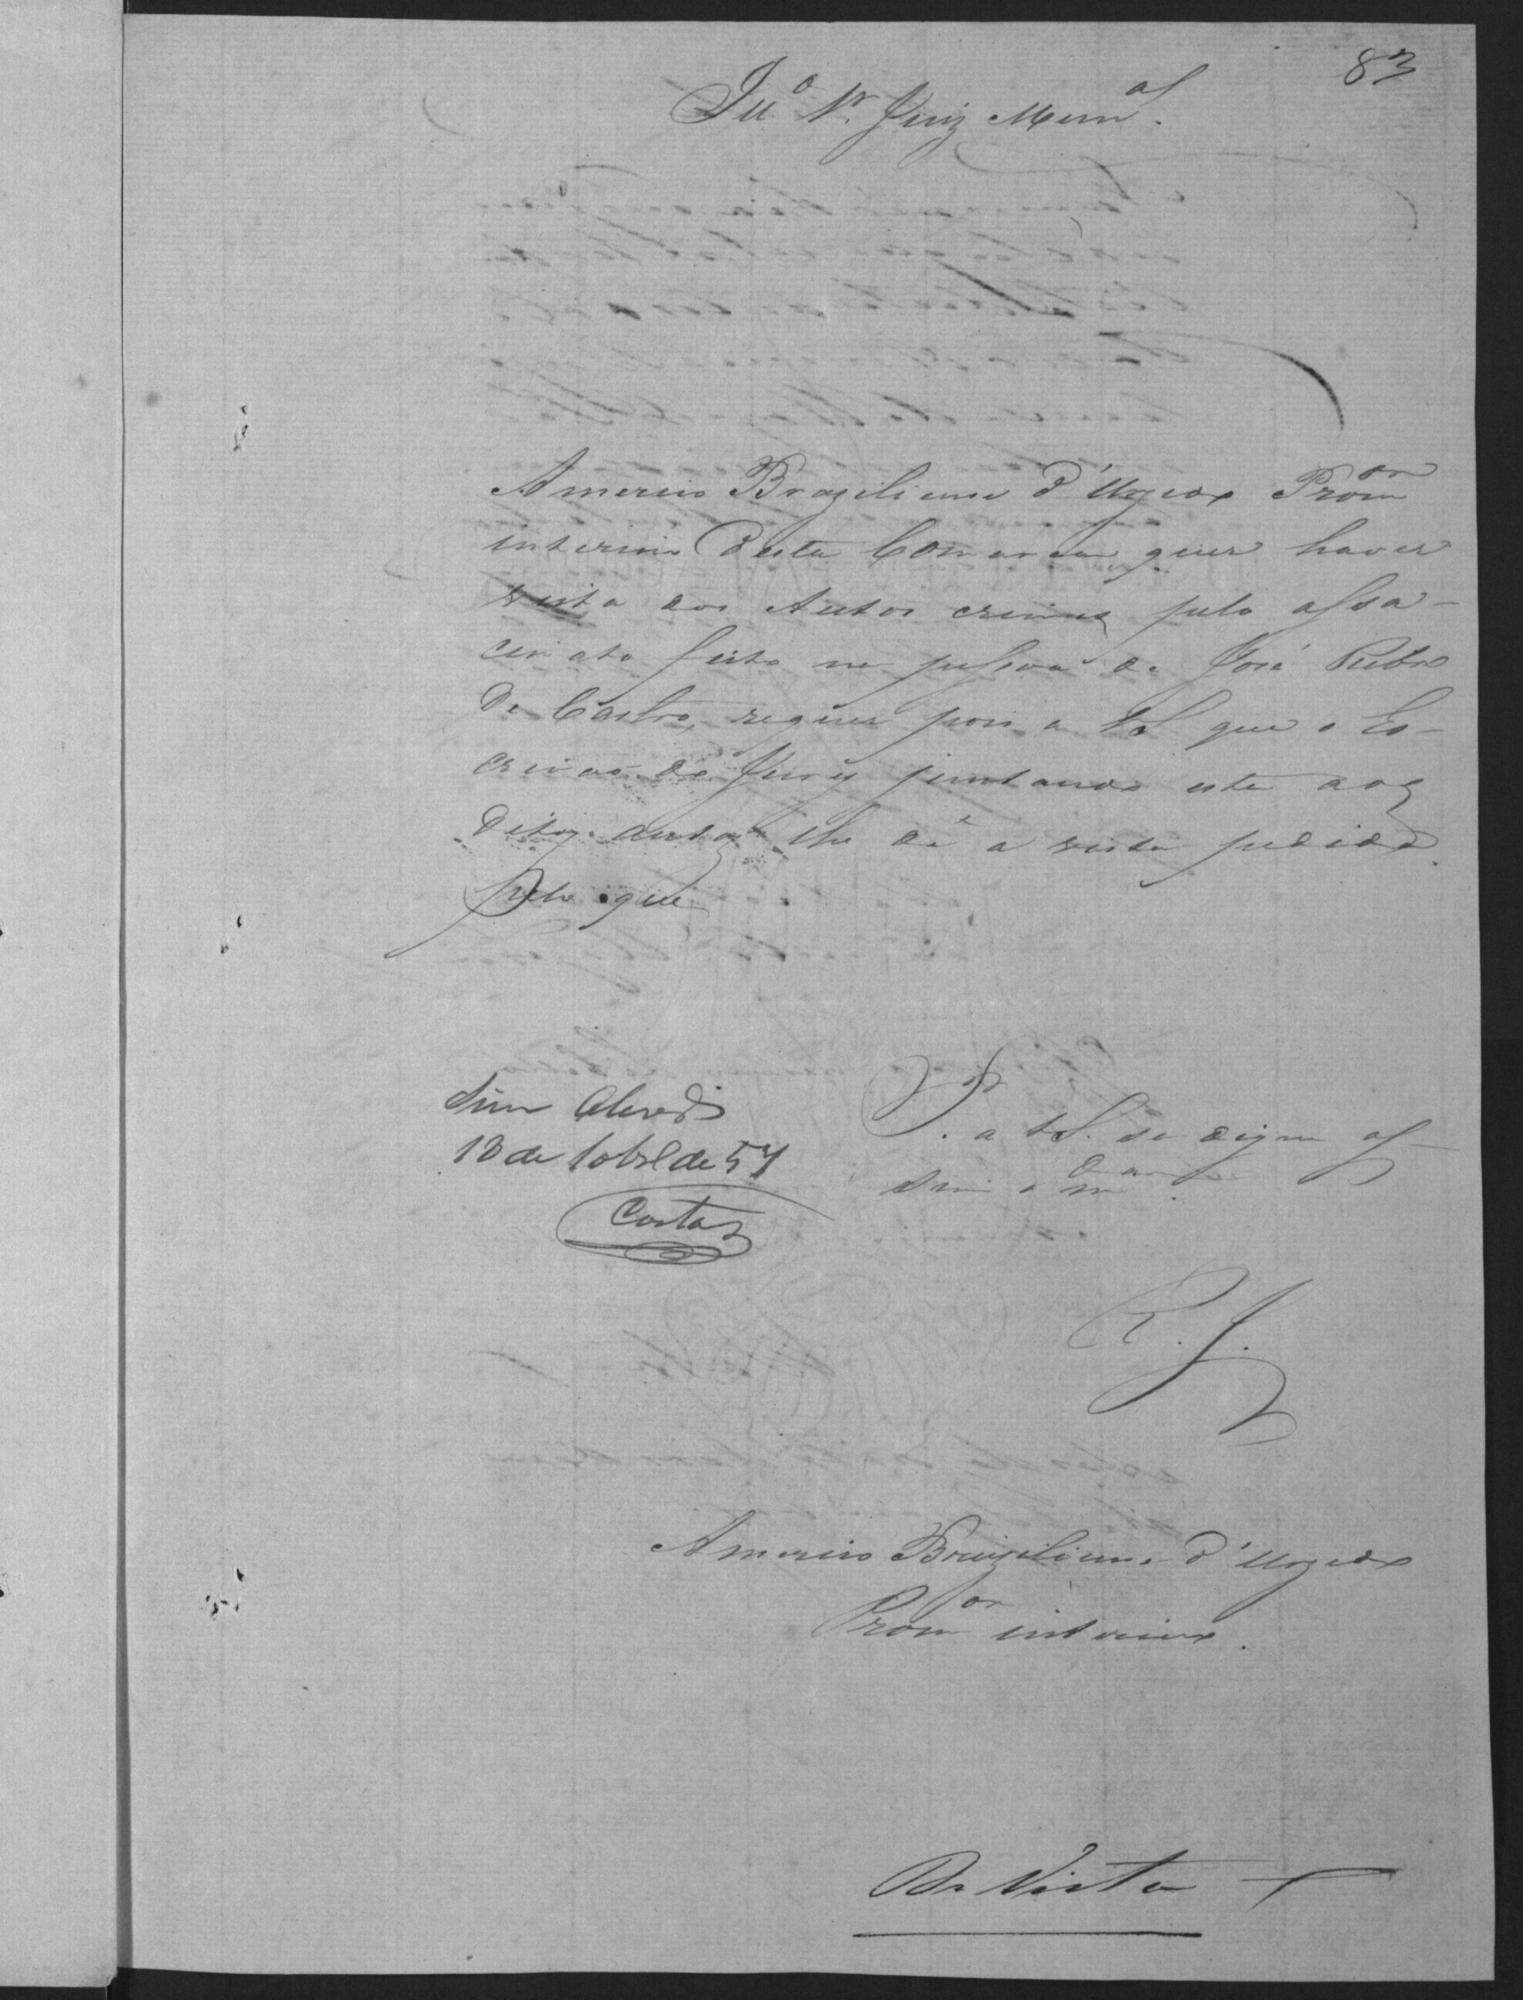 83
Ill.º Sr. Juiz Mun.al
Americo Braziliense d'Urzedo Prom.or
interino desta Comarca quer haver
vista dos Autos crimes pelo assa-
cinato feito na pessoa de José Pedro
de Castro, requer pois a V.S. que o Es-
crivão do Jury juntando este aos
ditos autos lhe dê a vista pedida.
pelo que
P. a V.S. se digne as-
sim o m.dar.
Sim
13 de 10br.e de 57
Costa
R. J.
Americo Braziliense d'Urzedo
Prom.or interino.
De Vista